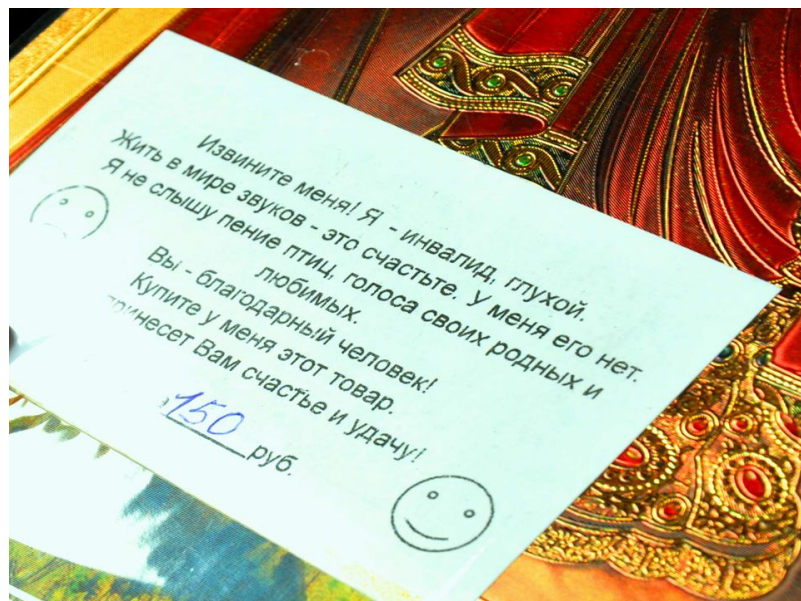 Извините меня! Я - инвалид, глухой.
Жить в мире звуков - это счастьте. у меня его нет.
Я не слышу пение птиц, голоса своих родных и
любимых.
Вы - благодарный человек!
Купите у меня этот товар.
принесет Вам счастье и удачу!
150 руб.